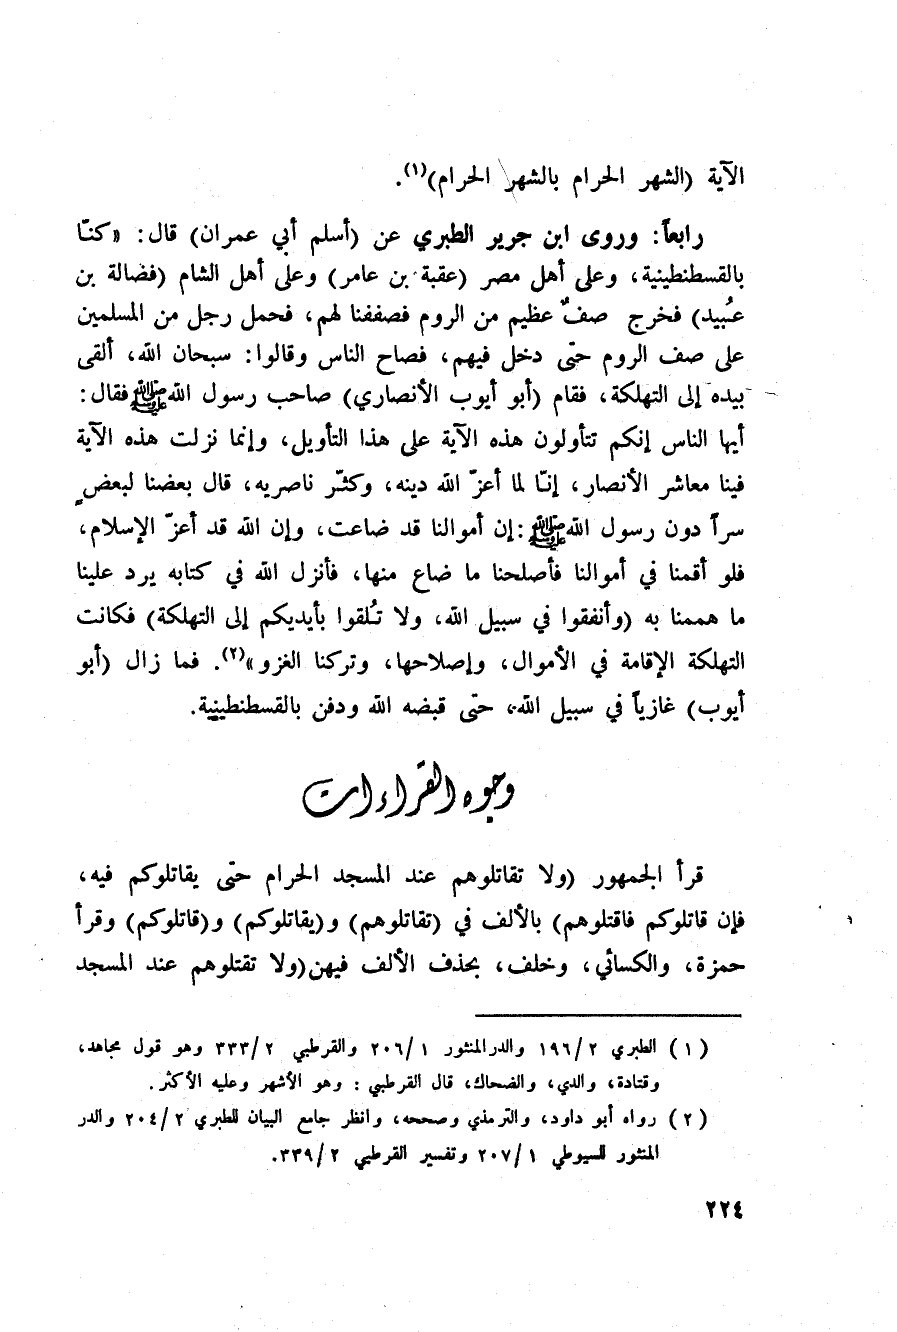 الآية (الشهر الحرام بالشهر الحرام)(١).
رابعاً: وروى ابن جرير الطبري عن (أسلم أبي عمران) قال: «كنّا
بالقسطنطينية، وعلى أهل مصر (عقبة بن عامر) وعلى أهل الشام (فضالة بن
عبُيد) فخرج صفٌ عظيم من الروم فصففنا لهم، فحمل رجل من المسلمين
على صف الروم حتى دخل فيهم، فصاح الناس وقالوا: سبحان الله، ألقى
بيده إلى التهلكة، فقام (أبو أيوب الأنصاري) صاحب رسول الله ﷺ فقال:
أيها الناس إنكم تتأولون هذه الآية على هذا التأويل، وإنما نزلت هذه الآية
فينا معاشر الأنصار، إنّا لما أعزّ الله دينه، وكثّر ناصريه، قال بعضنا لبعضٍ
سراً دون رسول الله ﷺ: إن أموالنا قد ضاعت، وإن الله قد أعزّ الإسلام،
فلو أقمنا في أموالنا فأصلحنا ما ضاع منها، فأنزل الله في كتابه يرد علينا
ما هممنا به (وأنفقوا في سبيل الله، ولا تُلقوا بأيديكم إلى التهلكة) فكانت
التهلكة الإقامة في الأموال، وإصلاحها، وتركنا الغزو»(٢). فما زال (أبو
أيوب) غازياً في سبيل الله، حتى قبضه الله ودفن بالقسطنطينية.
وجوه القراءات
قرأ الجمهور (ولا تقاتلوهم عند المسجد الحرام حتى يقاتلوكم فيه،
فإن قاتلوكم فاقتلوهم) بالألف في (تقاتلوهم) و(يقاتلوكم) و(قاتلوكم) وقرأ
حمزة، والكسائي، وخلف، بحذف الألف فيهن (ولا تقتلوهم عند المسجد
(١) الطبري ١٩٦/٢ والدر المنثور ٢٠٦/١ والقرطبي ٣٣٣/٢ وهو قول مجاهد،
وقتادة، والدي، والضحاك، قال القرطبي: وهو الأشهر وعليه الأكثر.
(٢) رواه أبو داود، والترمذي وصححه، وانظر جامع البيان للطبري ٢٠٤/٢ والدر
المنثور للسيوطي ٢٠٧/١ وتفسير القرطبي ٣٣٩/٢.
٢٢٤